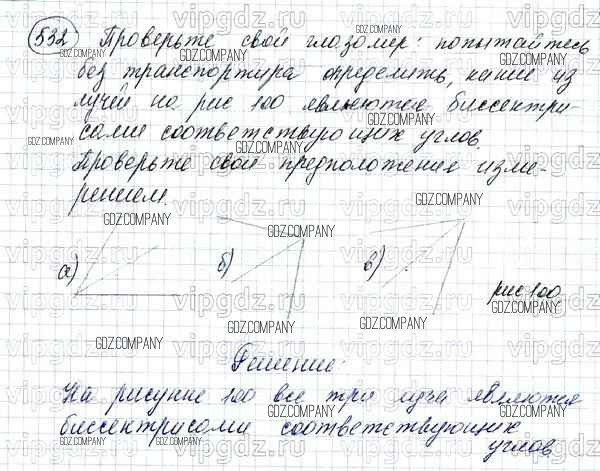 532 Проверьте свой глазомер: попытайтесь
без транспортира определить, какие из
лучей на рис 100 являются биссектри-
сами соответствующих углов.
Проверьте свои предположения изме-
рением.
а) б) в)
рис 100
Решение:
На рисунке 100 все три луча являются
биссектрисами соответствующих
углов